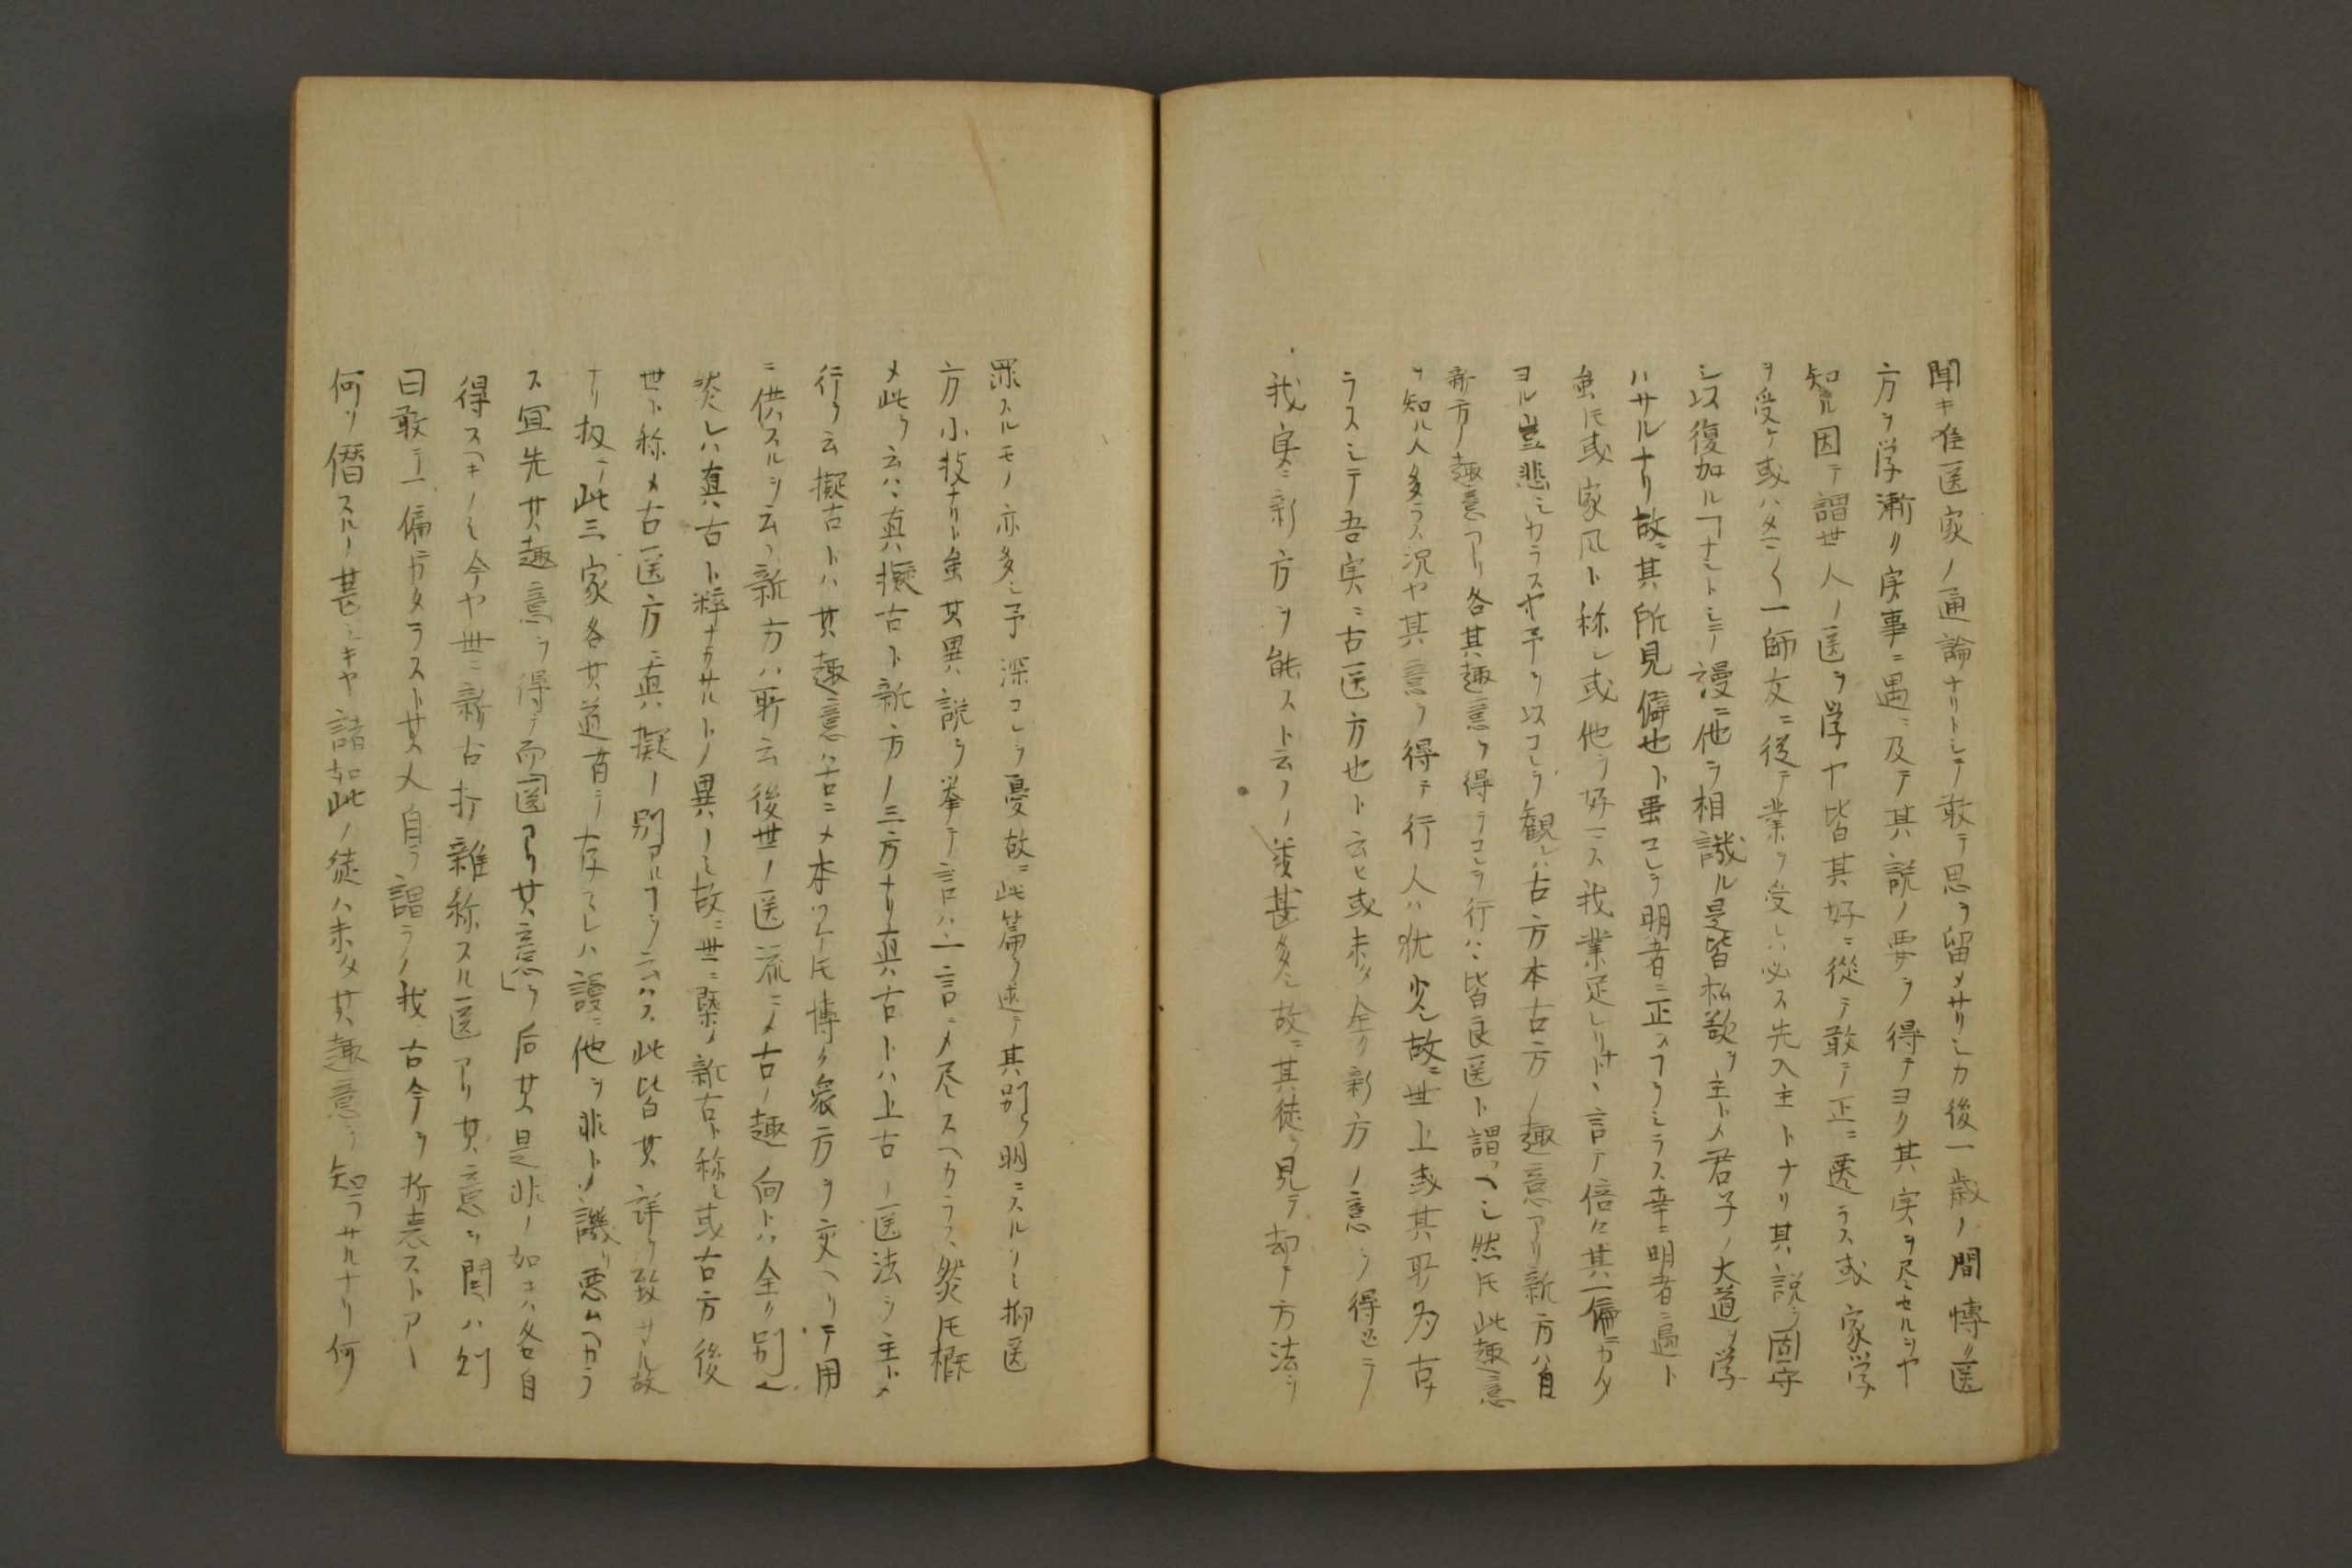 聞キ唯医家ノ通論ナリトシテ敢テ思ヲ留メサリシカ後一歳ノ間博ク医
方ヲ学漸ク実事ニ遇ニ及テ其説ノ要ヲ得テヨク其実ヲ尽セルヿヲ
知ル因テ謂世人ノ医ヲ学ヤ皆其好ニ従テ敢テ正ニ遷ラス或家学
ヲ受ケ或ハタマ〱一師友ニ従テ業ヲ受レハ必ス先入主トナリ其説ヲ固守
シ以復加ルヿナシトシテ謾ニ他ヲ相譏ル是皆私欲ヲ主トメ君子ノ大道ヲ学
ハサルナリ故ニ其所見僻也ト雖コレヲ明者ニ正スヿヲシラス幸ニ明者ニ遇ト
雖𪜈或家風ト称シ或他ヲ好マス我業足レリナト言テ倍々其一偏ニカタ
ヨル豈悲シカラスヤ予ヲ以コレヲ観レハ古方本古方ノ趣意アリ新方ハ自
新方ノ趣意アリ各其趣意ヲ得テコレヲ行ハ皆良医ト謂ヘシ然𪜈此趣意
ヲ知ル人多ラス況ヤ其意ヲ得テ行人ハ猶少シ故ニ世上或其所為古
ラスシテ吾実ニ古医方也ト云ヒ或未タ全ク新方ノ意ヲ得スシテ
我実ニ新方ヲ能ストムフノ輩甚多シ故ニ其徒ヲ見テ却テ方法ヲ
罪スルモノ亦多シ予深コレヲ憂故ニ此篇ヲ述テ其別ヲ明ニスルノミ抑医
方小技ナリト雖其異説ヲ挙テ言ハ一言ニメ尽スヘカラス然𪜈概
メ此ヲ云ハ真擬古ト新方ノ三方ナリ真古トハ上古ノ医法ヲ主トメ
行ヲ云擬古トハ其趣意ハ古ニメ本ツケ𪜈博ク衆方ヲ交ヘリテ用
ニ供スルヲ云フ新方ハ所云後世ノ医流ニメ古ノ趣向トハ全ク別也
然レハ真古ト粋ナラサルトノ異ノミ故ニ世ニ槩メ新古ト称シ或古方後
世ト称メ古医方ニ真擬ノ別アルヿヲ云ハス此皆其詳ヲ致サヽル故
ナリ扨テ此三家各其道旨ヲ存スレハ謾ニ他ヲ非トメ譏リ悪ムヘカラ
ス宜先其趣意ヲ得テ而医アリ其意ヲ后其是非ノ如キハ各自
得スヘキノミ今ヤ世ニ新古折雑称スル医アリ其意ヲ問ハ則
曰敢テ一偏ニカタラスト其人自ヲ謂ラノ我古今ヲ折衷ストアー
何ソ僭スルノ甚シキヤ諸如此ノ徒ハ未タ其趣意ヲ知ラサルナリ何